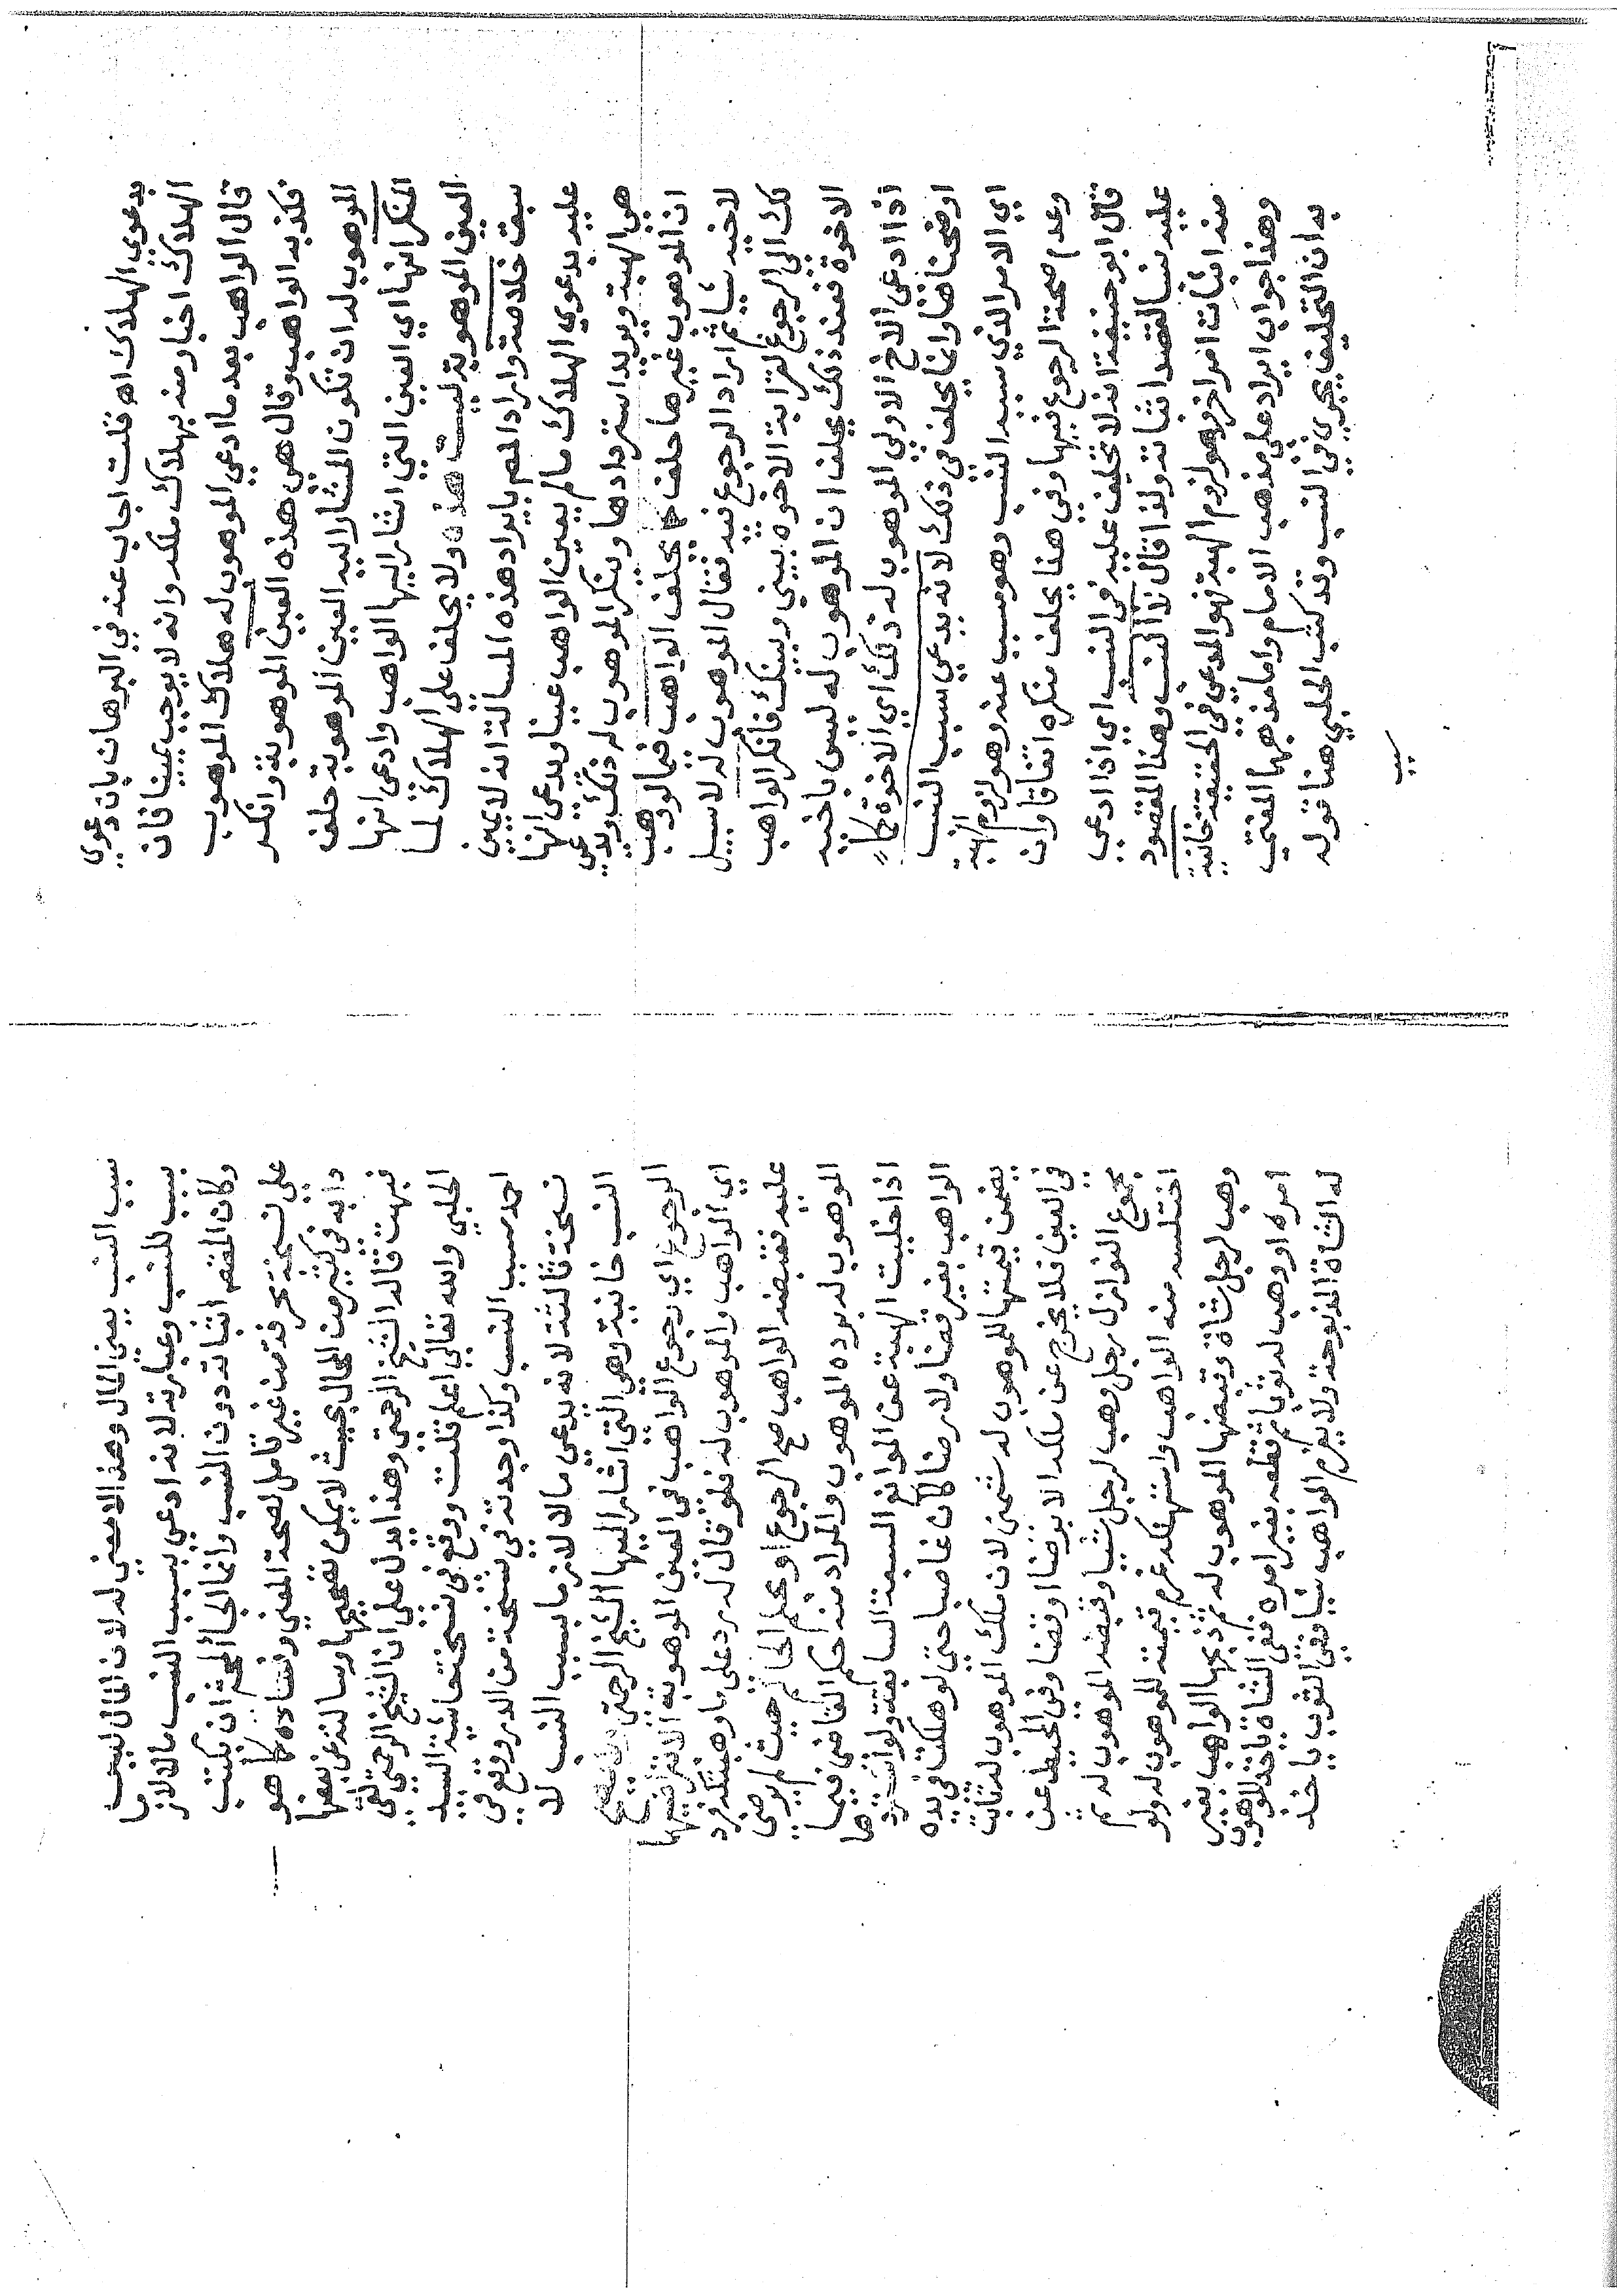 بدعوي الهلاك اهـ قلت اجاب عنه في البرهان بان دعوي
الهلاك اخبار منه بهلاك ملكه وانه لا يوجب يمينا فان
قال الواهب بعد ما ادعي الموهوب له هلاك الموهوب
فكذبه الواهب وقال هي هذه العين الموهوبة وانكر
الموهوب له ان تكون المشار اليه العين الموهوبة حلف
المنكر انها اي العين التي اشار اليها الواهب وادعى انها
العين الموهوبة ليست هذه ولا يحلف على الهلاك لما
سبق خلاصة واراد المص بايراد هذه المسالة انه لا يمين
عليه بدعوي الهلاك ما لم يعين الواهب عينا ويدعي انها
هي الهبة ويريد استردادها وينكر الموهوب له ذلك ويدعي
ان الموهوب غيرها حلف كما يحلف الواهب فيما لو وهب
لاخيه شيا ثم اراد الرجوع فيه فقال الموهوب له لا سبيل
لك الى الرجوع لقرابة الاخوة بيني وبينك فانكر الواهب
الاخوة فعند ذلك يحلف ان الموهوب له ليس باخيه
اذا ادعى الاخ الاولي الموهوب له ذلك اي الاخوة كما
اوضحناها وانما يحلف في ذلك لانه يدعي سبب النسب
اي الامر الذي سببه النسب وهو مسبب عنه وهو لزوم الهبة
وعدم صحة الرجوع فيها وفي هذا يحلف منكره اتفاقا وان
قال ابو حنيفة انه لا تحليف عليه في النسب اي اذا ادعي
عليه نسا لقصد اثباته ولذا قال لا النسب وهذا المقصود
منه اثبات امر اخر وهو لزوم الهبة فهو المدعي في الحقيقة خانية
وهذا جواب ايراد على مذهب الامام واما مذهبهما المفتى
به ان التحليف يجري في النسب وقد كتب الحلبي هنا قوله
سبب
سبب النسب يعني المال وهذا لا معني له لان المال ليس
بسبب للنسب وعبارته لانه ادعي بسبب النسب مالا لازما
وكان المقصد اثباته دون النسب وانما الجا المحشي ان يكتب
على نسخة محرفة من غير تامل لصحة المعني وفساده كما هو
دابه في كثير من المحال بحيث لا يمكن تصحيحها وسالته عن بعضها
فبهت قاله الشيخ الرحمتي وهذا يدل على ان الشيخ الرحمتي لقي
الحلبي والله تعالى اعلم قلت ووقع في نسخة حاشية السيد
احمد سبب النسب وكذا وجدته في نسخة من الدر ووقع في
نسخة ثالثة لانه يدعي مالا لازما بسبب النسب لا
النسب خانية وهي التي اشار اليها الشيخ الرحمتي
الرجوع اي رجوع الواهب في العين الموهوبة الا بتراضيهما
اي الواهب والموهوب له فلو قال له رد على ما وهبتك فرد
عليه فقبضه الواهب صح الرجوع او بحكم الحاكم حيث لم يرضى
الموهوب له برده الموهوب والمراد منه حكم القاضي فيما
اذا خليت الهبة عن الموانع السبعة السابقة ولو استردها
الواهب بغير قضا ولا رضا كان غاصبا حتى لو هلكت في يده
يضمن قيمتها للموهوب له شمني لان ملك الموهوب له ثابت
في العين فلا يخرج عن ملكه الا برضا او قضا وفي المحيط عن
مجموع النوازل رجل وهب لرجل شيا وقبضه الموهوب له ثم
اختلسه منه الواهب واستهلكه غرم قيمته للموهوب له ولو
وهب لرجل شاة وقبضها الموهوب له ثم ذبحها الواهب بغير
امره او وهب له ثوبا ثم قطعه بغير امره ففي الشاة ياخذ الموهوب
له الشاة المذبوحة ولا يغرم الواهب شيا وفي الثوب ياخذ